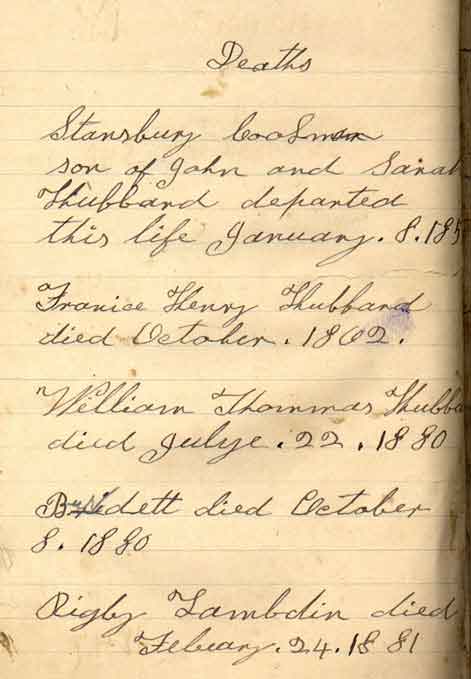 Deaths
Stansbury
son of John and Sarah
Hubbard departed
this life January. 8. 185
Franice Henry Hubbard
died October. 1862.
William Thommas Hubba
died Julye. 22. 1880
died October
8. 1880
Rigby Lambdin died
Febuary. 24. 1881